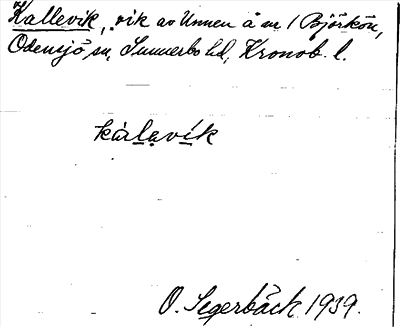 Kallevik, vik av Unnen å nr 1 Björkön,
Odensjö sn, Sunnerbo hd, Kronob. l.
kàrlavík
O. Segerbäck 1939.